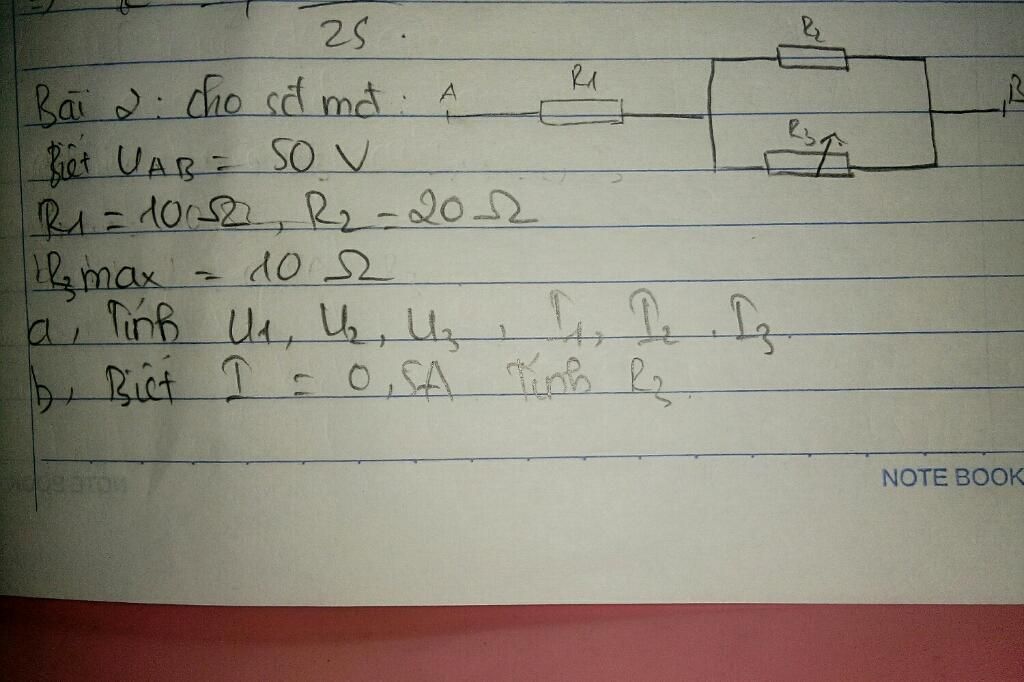 25.
Bài 2: Cho sđ mđ:
A R1 R2 R3 B
Biết UAB = 50 V
R1 = 10Ω, R2 = 20 Ω
R3max = 10 Ω
a, Tính U1, U2, U3, I1, I2, I3.
b, Biết I = 0,5A Tính R3.
NOTE BOOK